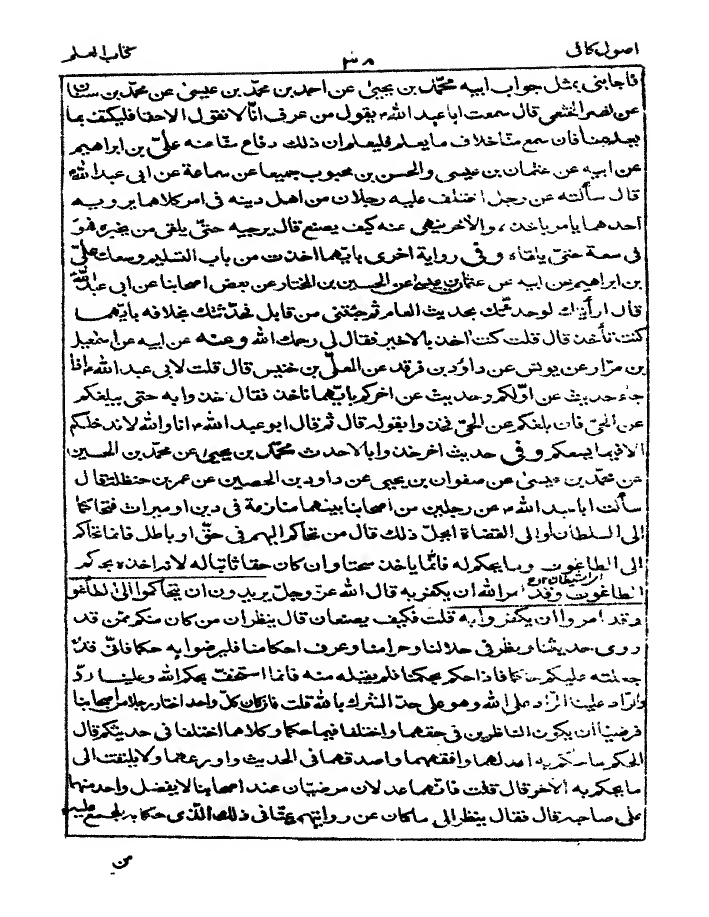 اصول كافى
٣٨
كتاب العلم
فاجابنى بمثل جواب ابيه محمّد بن يحيى عن احمد بن محمّد بن عيسى عن محمّد بن سنان
عن نصر الخثعمى قال سمعت ابا عبد الله ع يقول من عرف انّا لا نقول الا حقا فليكتف بما
يعلم منا فان سمع منّا خلاف ما يعلم فليعلم ان ذلك دفاع منّا عنه علىّ بن ابراهيم
عن ابيه عن عثمان بن عيسى والحسن بن محبوب جميعا عن سماعة عن ابى عبد الله ع
قال سألته عن رجل اختلف عليه رجلان من اهل دينه فى امر كلاهما يرويه
احدهما يامر باخذه والآخر ينهى عنه كيف يصنع قال يرجيه حتى يلقى من يخبره فهو
فى سعة حتى يلقاه وفى رواية اخرى بايّهما اخذت من باب التسليم وسعك علىّ
بن ابراهيم عن ابيه عن عثمان بن عيسى عن الحسين بن المختار عن بعض اصحابنا عن ابى عبد الله ع
قال ارأيتك لو حدثتك بحديث العام ثم جئتنى من قابل فحدّثتك بخلافه بايّهما
كنت تأخذ قال قلت كنت آخذ بالاخير فقال لى رحمك الله وعنه عن ابيه عن اسمعيل
بن مرّار عن يونس عن داود بن فرقد عن المعلّى بن خنيس قال قلت لابى عبد الله ع اذا
جاء حديث عن اوّلكم وحديث عن آخركم بايّهما ناخذ فقال خذوا به حتى يبلغكم
عن الحىّ فان بلغكم عن الحىّ فخذوا بقوله قال ثم قال ابو عبد الله ع انا والله لا ندخلكم
الا فيما يسعكم وفى حديث آخر خذوا بالاحدث محمّد بن يحيى عن محمّد بن الحسين
عن محمّد بن عيسى عن صفوان بن يحيى عن داود بن الحصين عن عمر بن حنظلة قال
سألت ابا عبد الله ع عن رجلين من اصحابنا بينهما منازعة فى دين او ميراث فتحاكما
الى السلطان او الى القضاة ايحلّ ذلك قال من تحاكم اليهم فى حقّ او باطل فانما تحاكم
الى الطاغوت وما يحكم له فانّما ياخذ سحتا وان كان حقا ثابتا له لانه اخذه بحكم
الطاغوت وقد امر الله ان يكفر به قال الله عزّ وجلّ يريدون ان يتحاكموا الى الطاغوت
وقد امروا ان يكفروا به قلت فكيف يصنعان قال ينظران من كان منكم ممّن قد
روى حديثنا ونظر فى حلالنا وحرامنا وعرف احكامنا فليرضوا به حكما فانّى قد
جعلته عليكم حاكما فاذا حكم بحكمنا فلم يقبله منه فانما استخفّ بحكم الله وعلينا ردّ
والرادّ علينا الرّادّ على الله وهو على حدّ الشرك بالله قلت فان كان كلّ واحد اختار رجلا من اصحابنا
فرضيا ان يكون الناظرين فى حقهما واختلفا فيما حكما وكلاهما اختلفا فى حديثكم قال
الحكم ما حكم به اعدلهما وافقههما واصدقهما فى الحديث واورعهما ولا يلتفت الى
ما يحكم به الآخر قال قلت فانّهما عدلان مرضيّان عند اصحابنا لا يفضل واحد منهما
على صاحبه قال فقال ينظر الى ما كان عن روايتهم عنّا فى ذلك الذى حكما به المجمع عليه
من